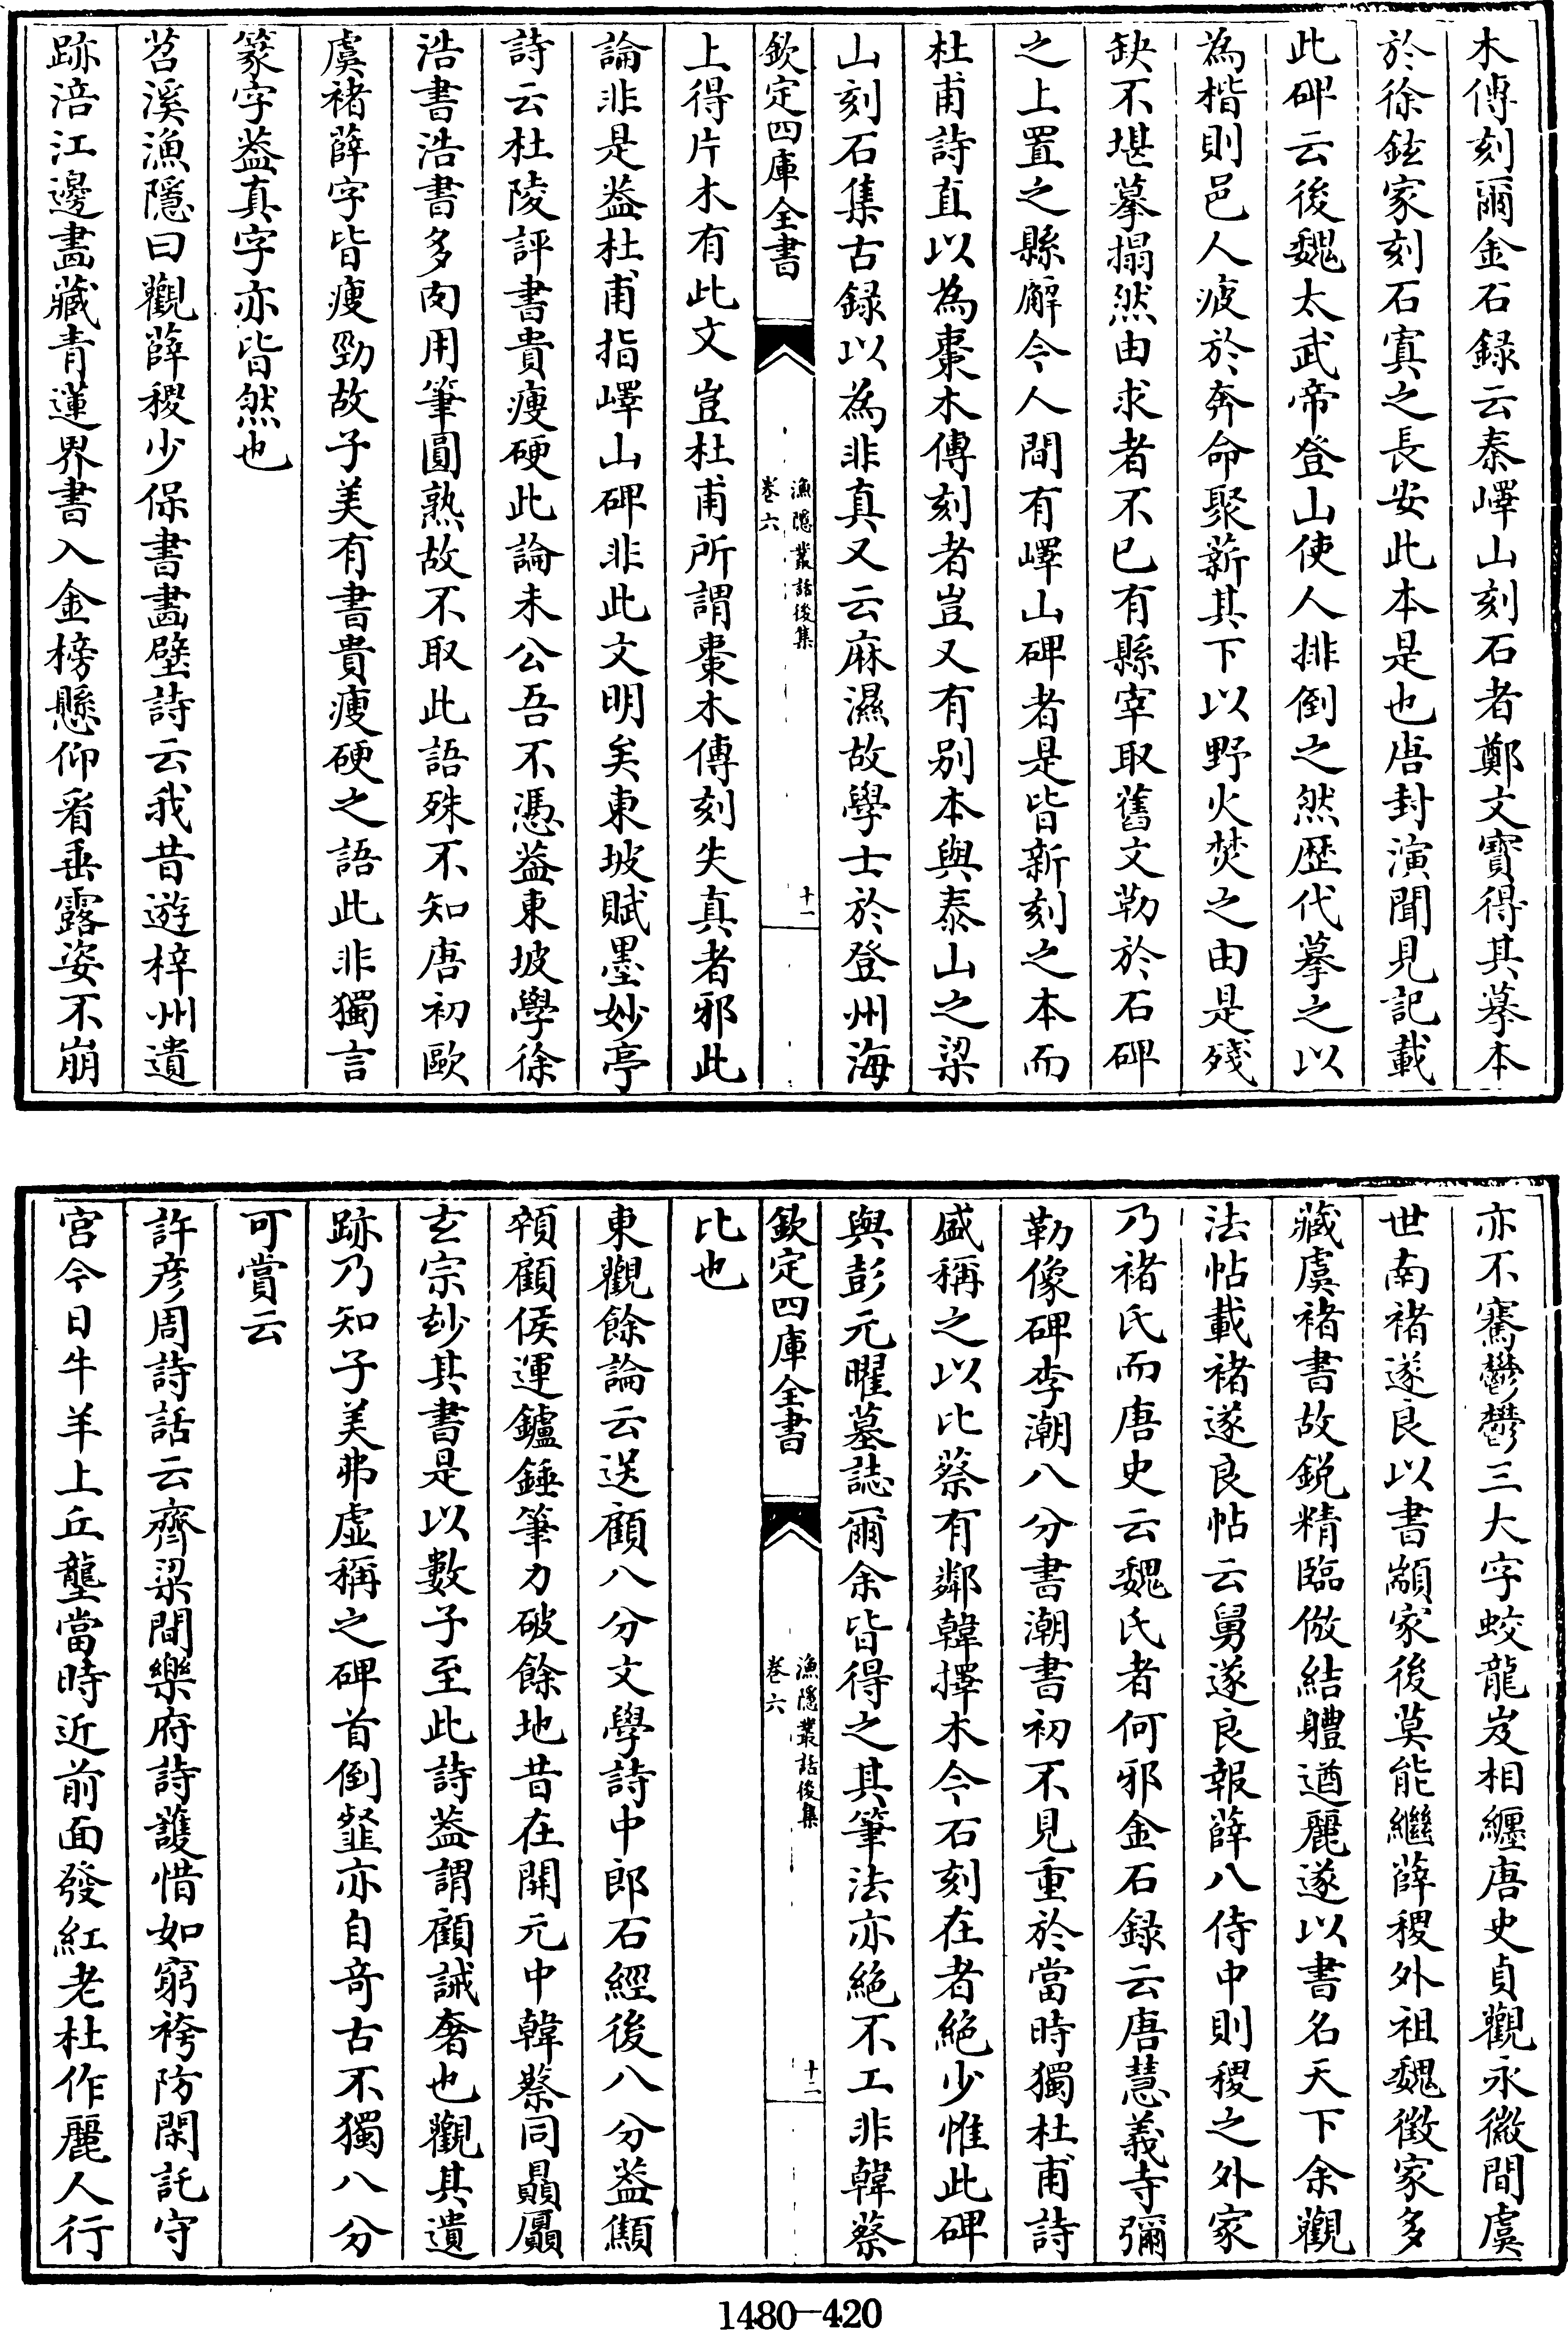 木傳刻爾金石録云秦嶧山刻石者鄭文寶得其摹本
於徐鉉家刻石寘之長安此本是也唐封演聞見記載
此碑云後魏太武帝登山使人排倒之然歴代摹之以
為楷則邑人疲於奔命聚薪其下以野火焚之由是殘
缺不堪摹搨然由求者不已有縣宰取舊文勒於石碑
之上置之縣廨今人間有嶧山碑者是皆新刻之本而
杜甫詩直以為棗木傳刻者豈又有别本與泰山之梁
山刻石集古録以為非真又云麻濕故學士於登州海
欽定四庫全書
漁隱叢話後集
卷六
十一
上得片木有此文豈杜甫所謂棗木傳刻失真者邪此
論非是葢杜甫指嶧山碑非此文明矣東坡賦墨妙亭
詩云杜陵評書貴瘦硬此論未公吾不憑葢東坡學徐
浩書浩書多肉用筆圓熟故不取此語殊不知唐初歐
虞褚薛字皆瘦勁故子美有書貴瘦硬之語此非獨言
篆字葢真字亦皆然也
苕溪漁隱曰觀薛稷少保書畫壁詩云我昔遊梓州遺
跡涪江邊畫藏青蓮界書入金榜懸仰看垂露姿不崩
亦不騫鬱鬱三大字蛟龍岌相纒唐史貞觀永徽間虞
世南褚遂良以書顓家後莫能繼薛稷外祖魏徵家多
藏虞褚書故鋭精臨倣結體遒麗遂以書名天下余觀
法帖載褚遂良帖云舅遂良報薛八侍中則稷之外家
乃褚氏而唐史云魏氏者何邪金石録云唐慧義寺彌
勒像碑李潮八分書潮書初不見重於當時獨杜甫詩
盛稱之以比蔡有鄰韓擇木今石刻在者絶少惟此碑
與彭元曜墓誌爾余皆得之其筆法亦絶不工非韓蔡
欽定四庫全書
漁隱叢話後集
卷六
十二
比也
東觀餘論云送顧八分文學詩中郎石經後八分葢顦
顇顧侯運鑪錘筆力破餘地昔在開元中韓蔡同贔屭
玄宗玅其書是以數子至此詩葢謂顧誡奢也觀其遺
跡乃知子美弗虚稱之碑首倒韰亦自竒古不獨八分
可賞云
許彦周詩話云齊梁間樂府詩護惜如窮袴防閑託守
宫今日牛羊上丘壟當時近前面發紅老杜作麗人行
1480—420